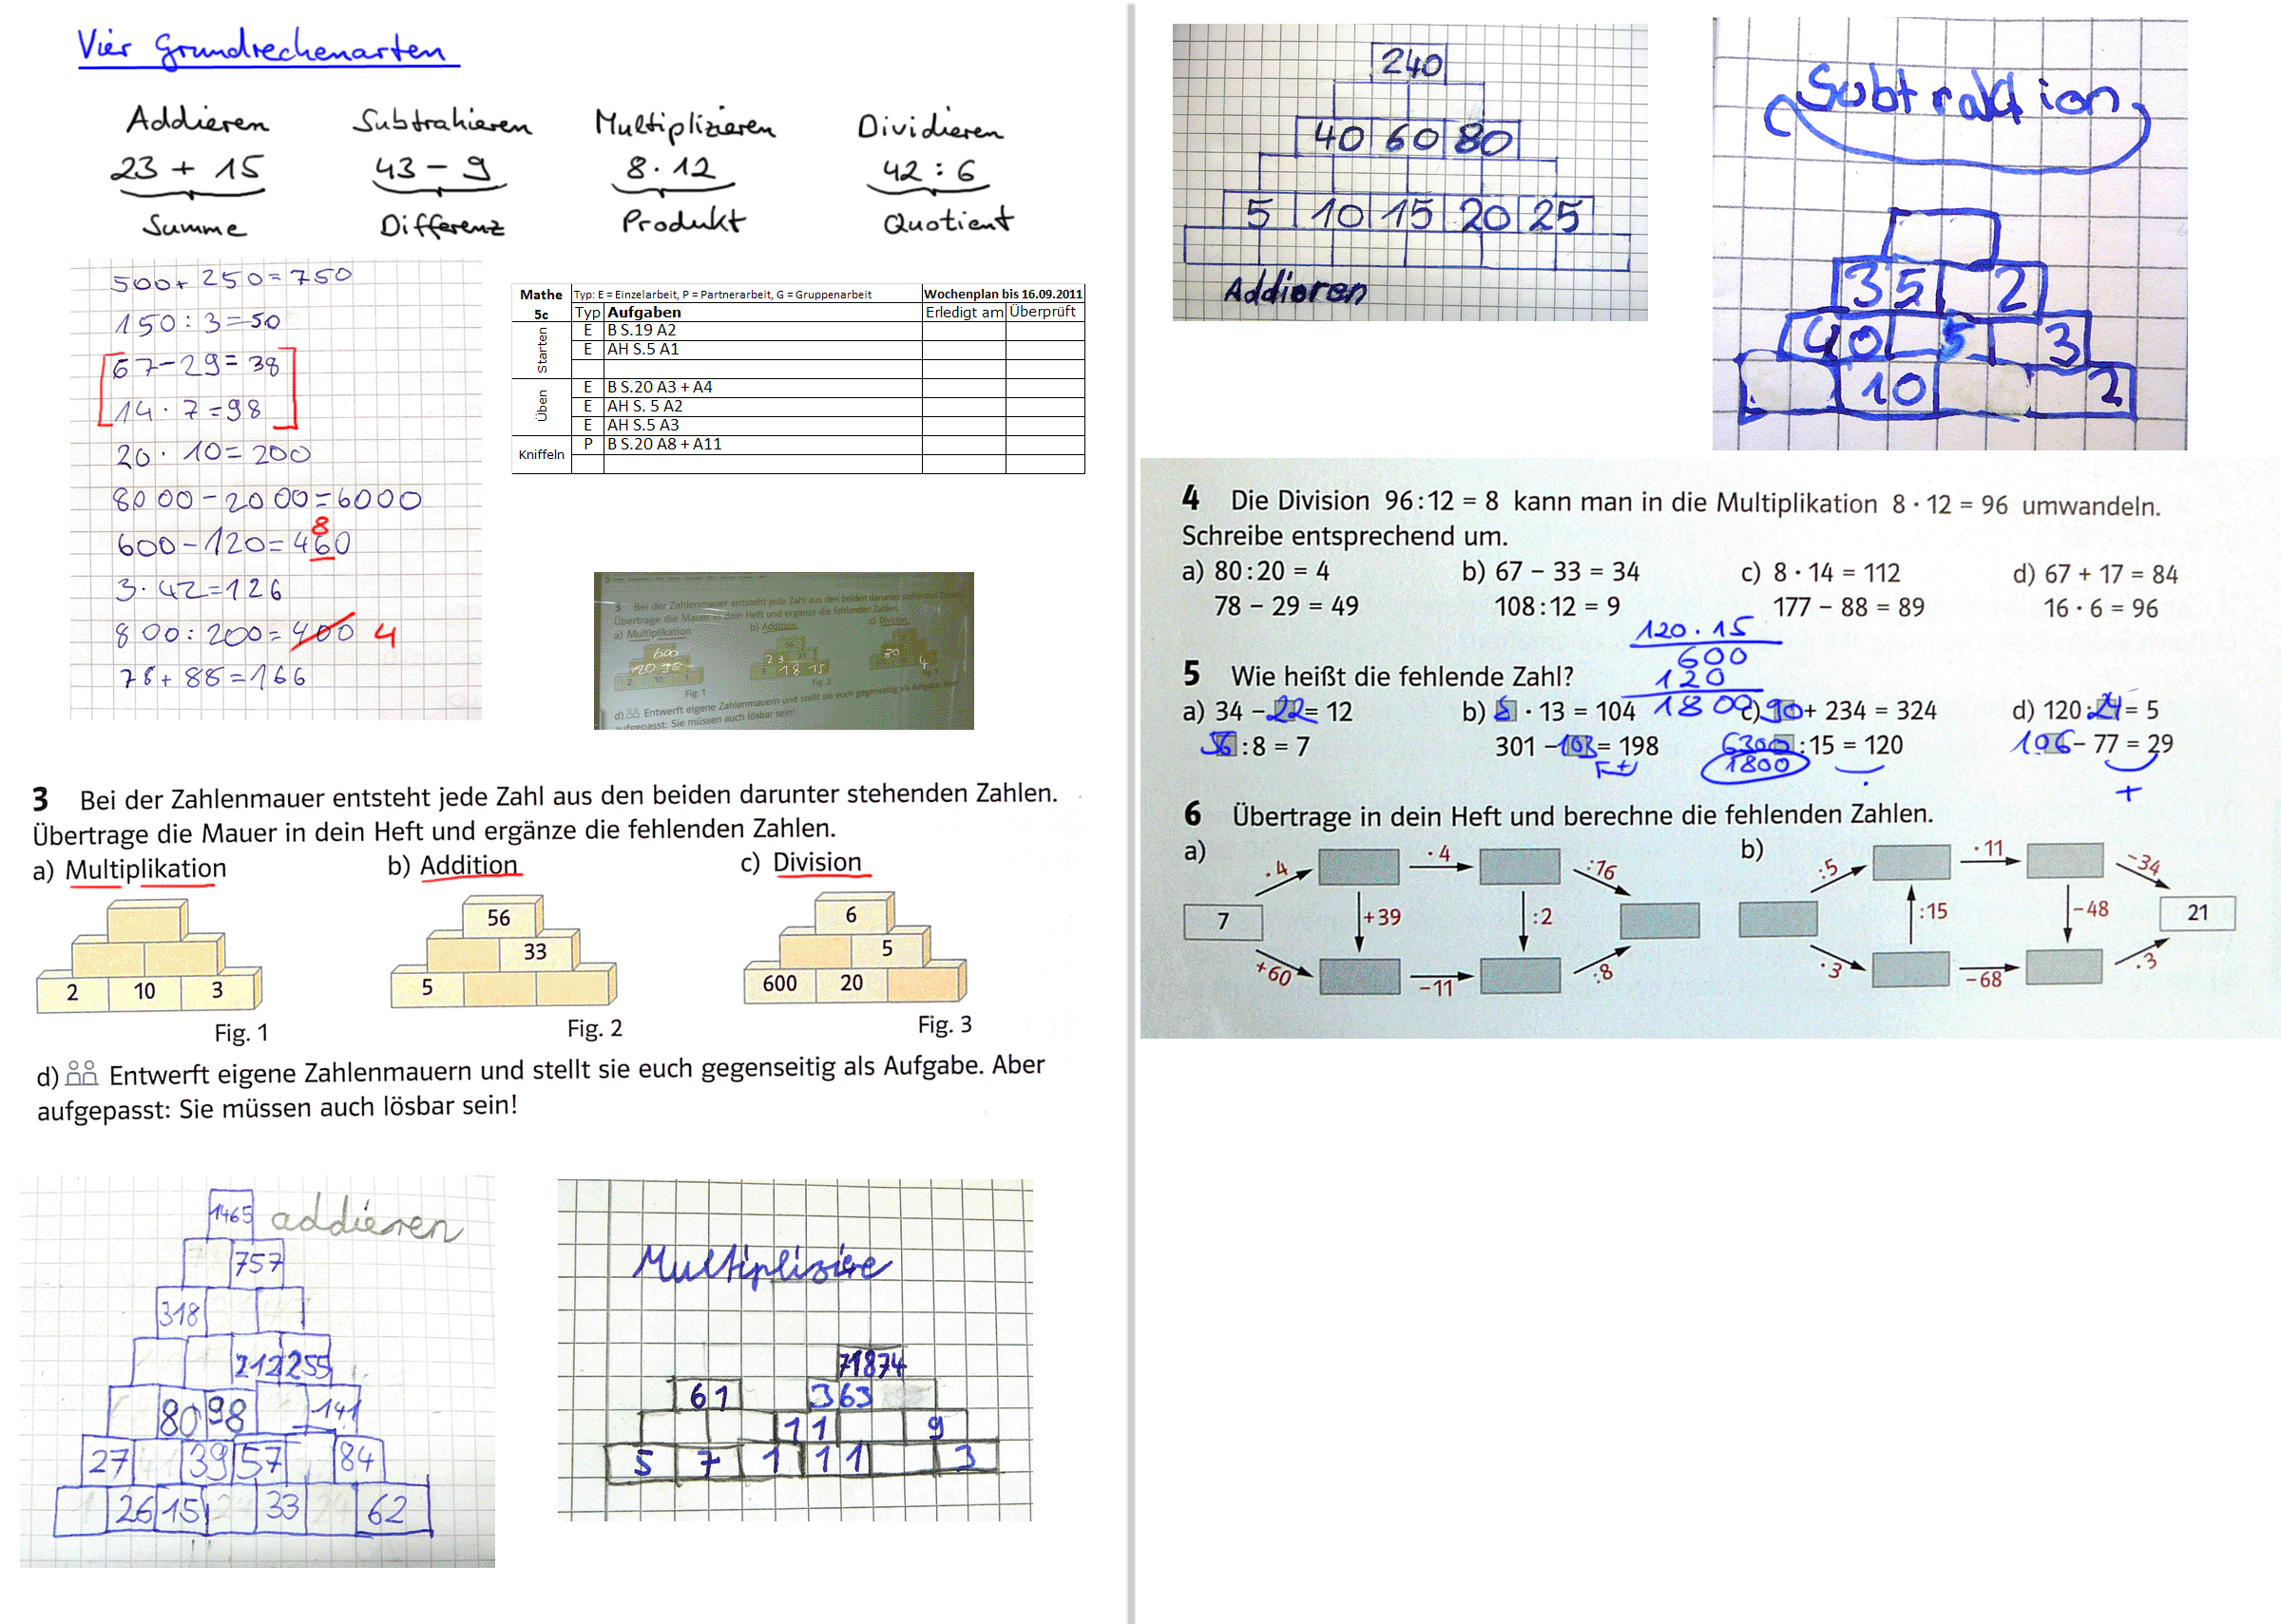 Vier Grundrechenarten
Addieren Subtrahieren Multiplizieren Dividieren
23 + 15 43 - 9 8 · 12 42 : 6
Summe Differenz Produkt Quotient
500 + 250 = 750
150 : 3 = 50
67 - 29 = 38
14 · 7 = 98
20 · 10 = 200
8000 - 2000 = 6000
8
600 - 120 = 460
3 · 42 = 126
800 : 200 = 400 4
78 + 88 = 166
Mathe Typ: E = Einzelarbeit, P = Partnerarbeit, G = Gruppenarbeit Wochenplan bis 16.09.2011
5c Typ Aufgaben Erledigt am Überprüft
Starten
E B S.19 A2
E AH S.5 A1
Üben
E B S.20 A3 + A4
E AH S. 5 A2
E AH S.5 A3
Kniffeln
P B S.20 A8 + A11
3 Bei der Zahlenmauer entsteht jede Zahl aus den beiden darunter stehenden Zahlen.
Übertrage die Mauer in dein Heft und ergänze die fehlenden Zahlen.
a) Multiplikation b) Addition c) Division
600
20 30
2 10 3
Fig. 1
56
23 33
5 18 15
Fig. 2
30
4
d) Entwerft eigene Zahlenmauern und stellt sie euch gegenseitig als Aufgabe. Aber
aufgepasst: Sie müssen auch lösbar sein!
3 Bei der Zahlenmauer entsteht jede Zahl aus den beiden darunter stehenden Zahlen.
Übertrage die Mauer in dein Heft und ergänze die fehlenden Zahlen.
a) Multiplikation b) Addition c) Division
2 10 3
Fig. 1
56
33
5
Fig. 2
6
5
600 20
Fig. 3
d) Entwerft eigene Zahlenmauern und stellt sie euch gegenseitig als Aufgabe. Aber
aufgepasst: Sie müssen auch lösbar sein!
1465 addieren
757
318
212 255
80 98 141
27 39 57 84
26 15 33 62
Multipliziere
71874
61 363
11 9
5 7 1 11 3
240
40 60 80
5 10 15 20 25
Addieren
Subtraktion
35 2
40 5 3
10 2
4 Die Division 96 : 12 = 8 kann man in die Multiplikation 8 · 12 = 96 umwandeln.
Schreibe entsprechend um.
a) 80 : 20 = 4 b) 67 − 33 = 34 c) 8 · 14 = 112 d) 67 + 17 = 84
78 − 29 = 49 108 : 12 = 9 177 − 88 = 89 16 · 6 = 96
120 · 15
600
120
1800
5 Wie heißt die fehlende Zahl?
a) 34 − 22 = 12 b) 8 · 13 = 104 c) 90 + 234 = 324 d) 120 : 24 = 5
56 : 8 = 7 301 − 103 = 198 6300 : 15 = 120 106 − 77 = 29
1800 ·
+
6 Übertrage in dein Heft und berechne die fehlenden Zahlen.
a) b)
·4 ·4 :76 :5 ·11 −34
7 +39 :2 :15 −48 21
+60 −11 :8 ·3 −68 ·3